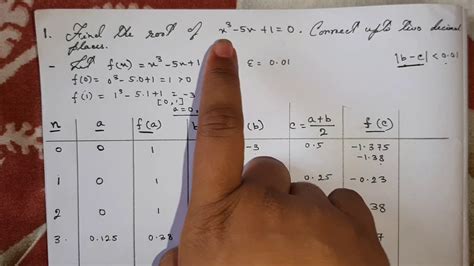 1. Find the root of x³-5x+1=0. Correct upto two decimal
places.
- Let f(x)=x³-5x+1 ε = 0.01 |b-c| < 0.01
f(0)= 0³-5.0+1=1 >0
f(1)= 1³-5.1+1=-3
[0,1]
a=0,
n a f(a) b (b) c = a+b/2 f(c)
0 0 1 -3 0.5 -1.375
-1.38
1 0 1 0.25 -0.23
2 0 1 38
3. 0.125 0.38